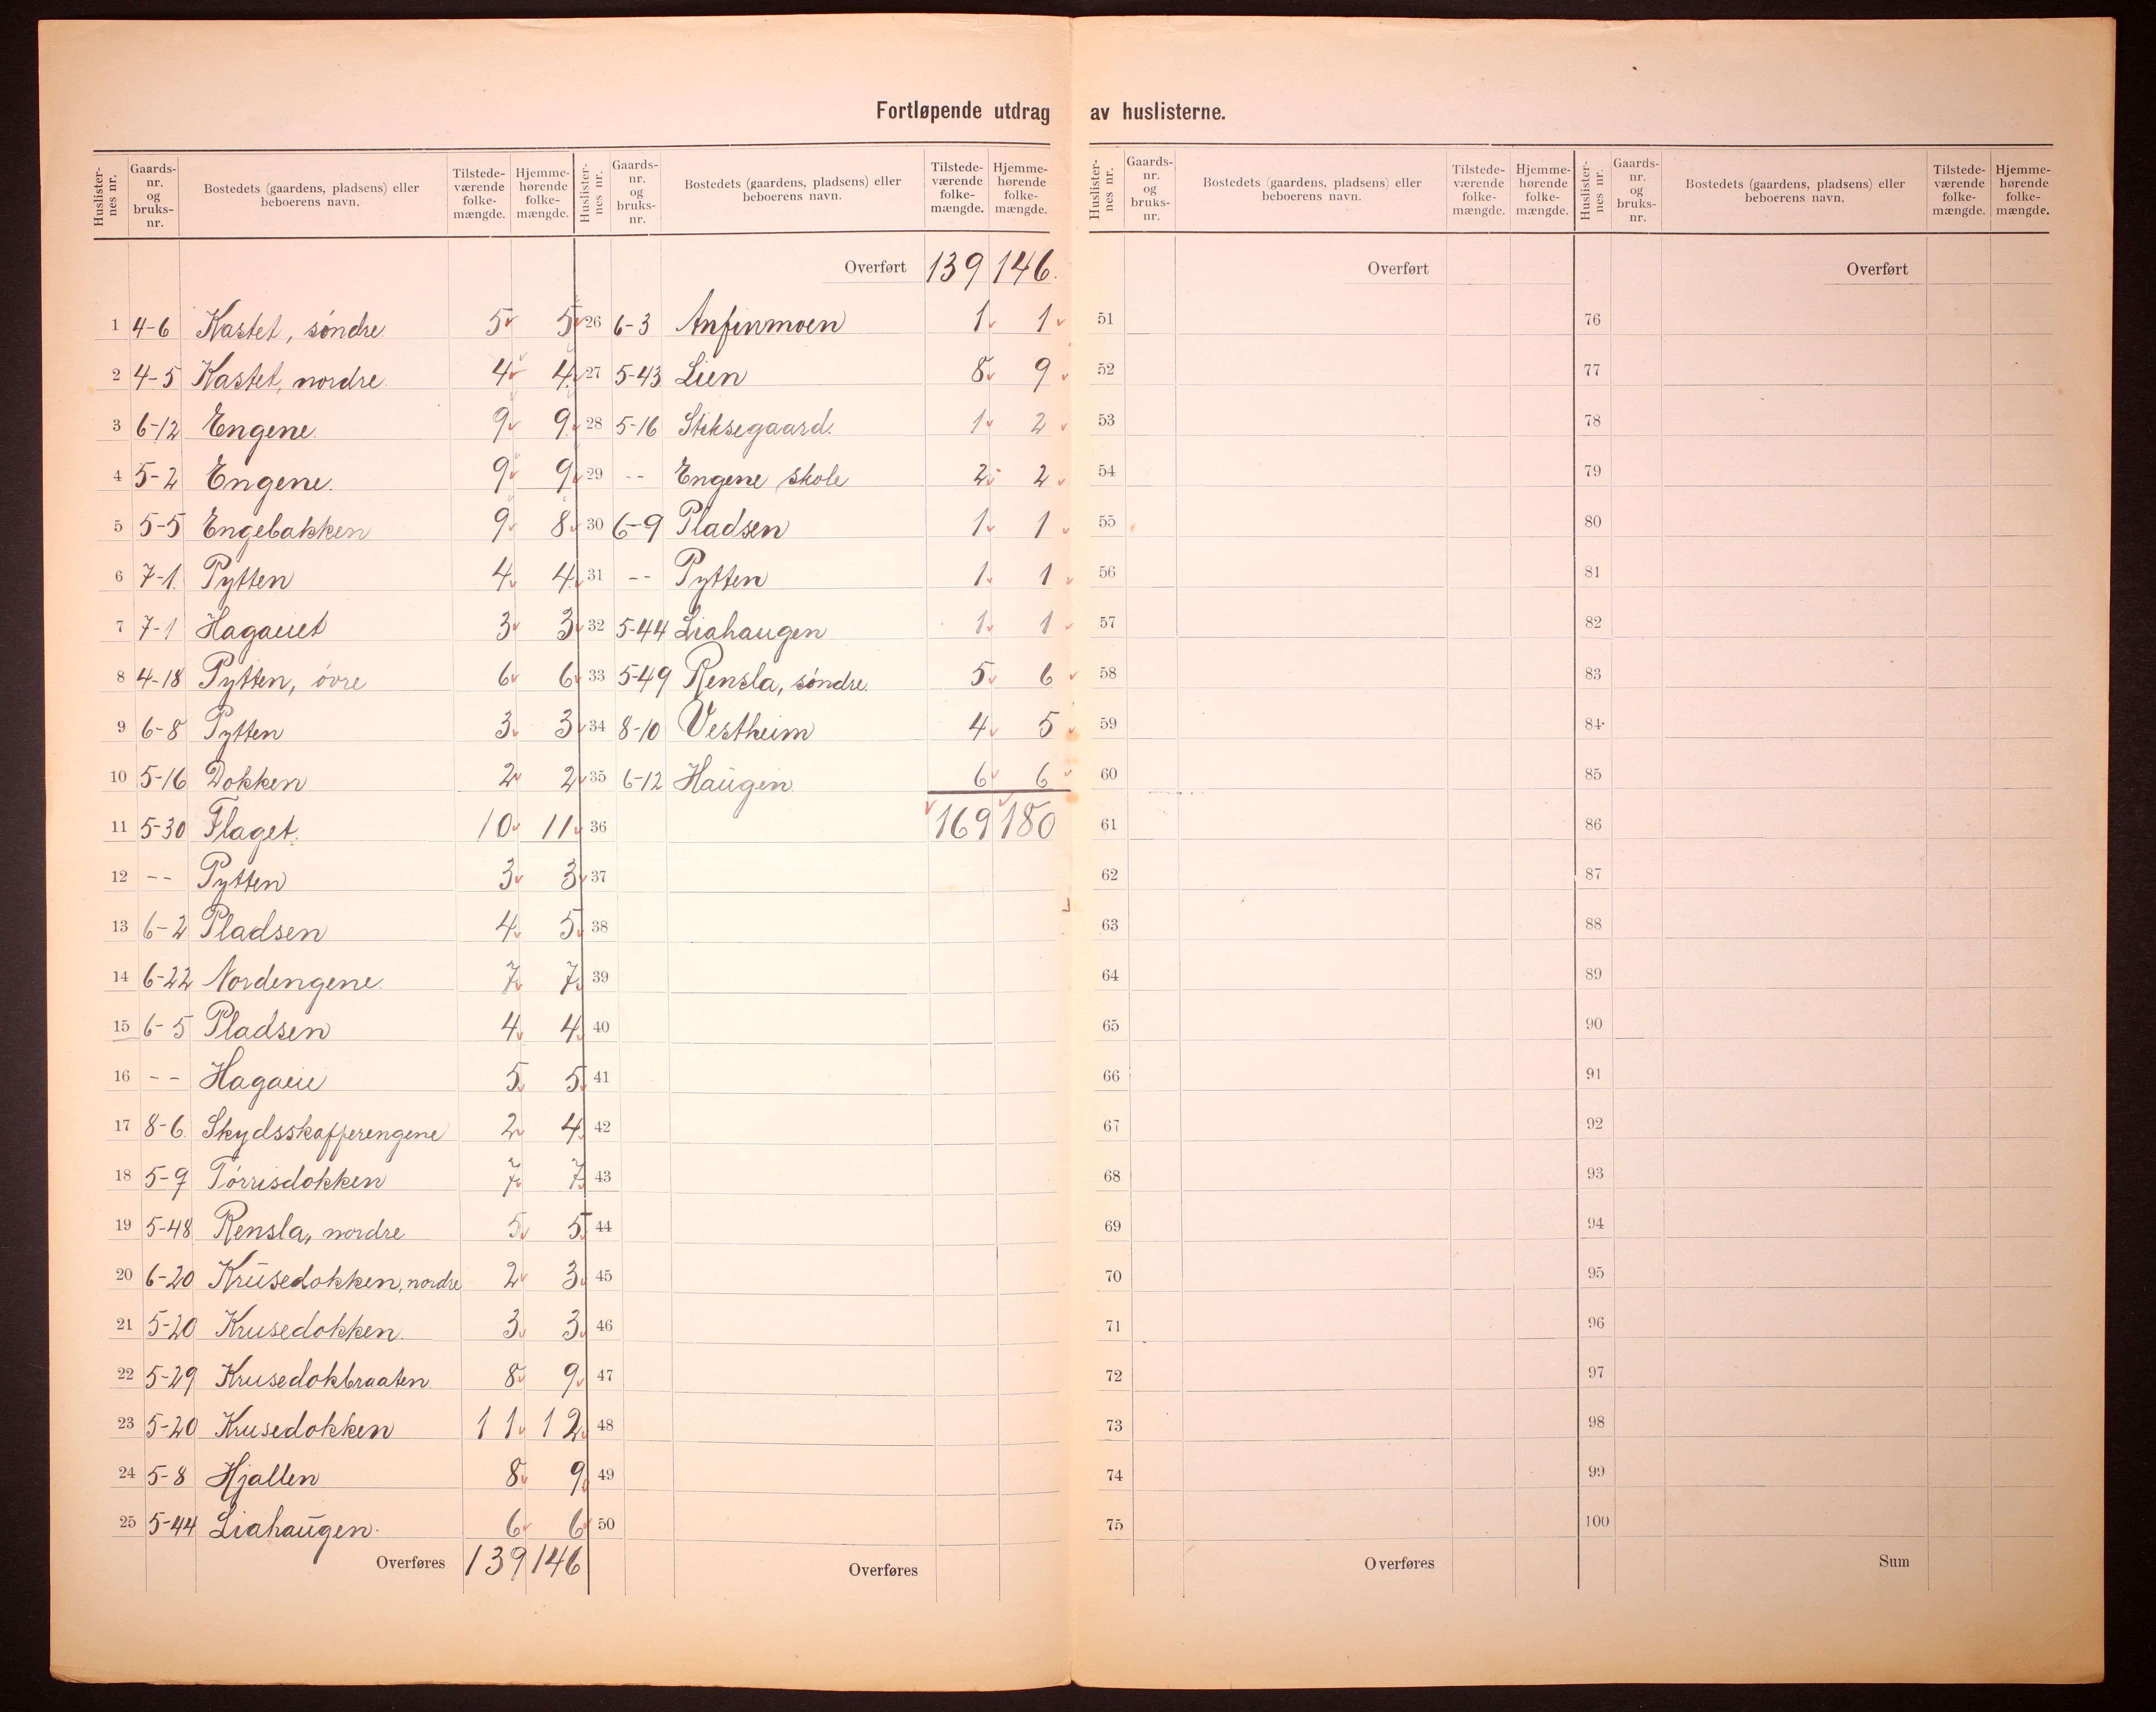 Fortløpende utdrag av huslisterne.
Huslister-nes nr. Gaards-nr. og bruks-nr. Bostedets (gaardens, pladsens) eller beboerens navn. Tilstede-værende folke-mængde. Hjemme-hørende folke-mængde.
1 4-6 Kastet, søndre. 5 5
2 4-5 Kastet, nordre. 4 4
3 6-12 Engene. 9 9
4 5-2 Engene. 9 9
5 5-5 Engebakken 9 8
6 7-1. Pytten 4 4
7 7-1 Hagaeiet 3 3
8 4-18 Pytten, øvre 6 6
9 6-8 Pytten 3 3
10 5-16 Dokken 2 2
11 5-30 Flaget. 10 11
12 -- Pytten 3 3
13 6-2 Pladsen 4 5
14 6-22 Nordengene. 7 7
15 6-5 Pladsen 4 4
16 -- Hagaeie 5 5
17 8-6. Skydsskafferengene 2 4
18 5-9 Tørrisdokken 7 7
19 5-48 Rensla, nordre 5 5
20 6-20 Krusedokken, nordre 2 3
21 5-20 Krusedokken. 3 3
22 5-29 Krusedokbraaten 8 9
23 5-20 Krusedokken 11 12
24 5-8 Hjallen 8 9
25 5-44 Liahaugen. 6 6
Overføres 139 146
Huslister-nes nr. Gaards-nr. og bruks-nr. Bostedets (gaardens, pladsens) eller beboerens navn. Tilstede-værende folke-mængde. Hjemme-hørende folke-mængde.
Overført 139 146.
26 6-3 Anfinmoen 1 1
27 5-43 Lien 8 9
28 5-16 Stiksegaard. 1 2
29 -- Engene skole 2 2
30 6-9 Pladsen 1 1
31 -- Pytten 1 1
32 5-44 Liahaugen 1 1
33 5-49 Rensla, søndre. 5 6
34 8-10 Vestheim 4 5
35 6-12 Haugen 6 6
36 169 180
37
38
39
40
41
42
43
44
45
46
47
48
49
50
Overføres
Huslister-nes nr. Gaards-nr. og bruks-nr. Bostedets (gaardens, pladsens) eller beboerens navn. Tilstede-værende folke-mængde. Hjemme-hørende folke-mængde.
Overført
51
52
53
54
55
56
57
58
59
60
61
62
63
64
65
66
67
68
69
70
71
72
73
74
75
Overføres
Huslister-nes nr. Gaards-nr. og bruks-nr. Bostedets (gaardens, pladsens) eller beboerens navn. Tilstede-værende folke-mængde. Hjemme-hørende folke-mængde.
Overført
76
77
78
79
80
81
82
83
84
85
86
87
88
89
90
91
92
93
94
95
96
97
98
99
100
Sum